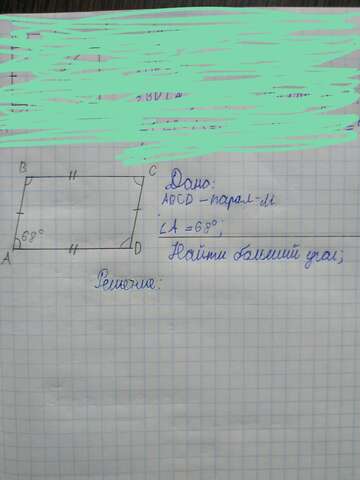 B
C
Дано:
ABCD - парал-м
A
68°
D
∠A = 68°;
Найти больший угол;
Решение: